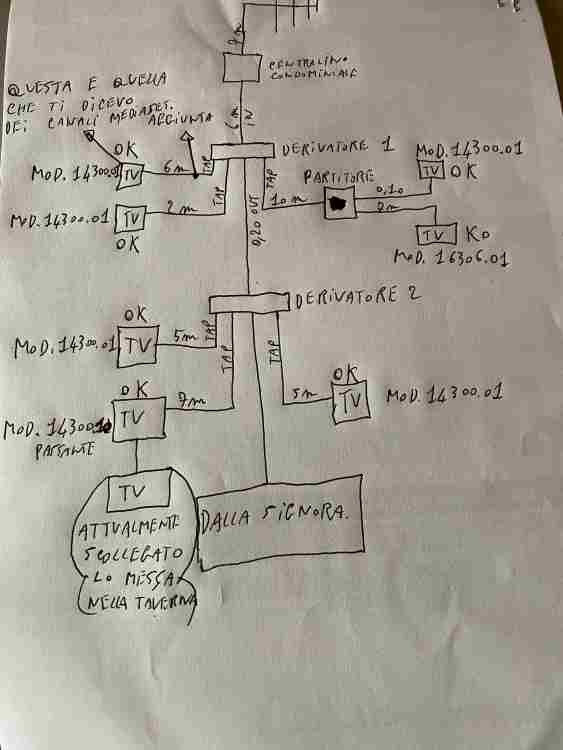 7m
CENTRALINO
CONDOMINIALE
QUESTA E QUELLA
CHE TI DICEVO
DEI CANALI MEDIASET.
AGGIUNTA
6m
IN
OK
MOD. 14300.01
TV
6m
TAP
DERIVATORE 1
MOD. 14300.01
TV
OK
PARTITORE
MOD. 14300.01
TV
OK
2m
TAP
0,20 OUT
TAP
10m
0,10
2m
TV
KO
MOD. 16306.01
DERIVATORE 2
OK
MOD. 14300.01
TV
5m
TAP
TAP
TAP
OK
MOD. 14300.10
PASSANTE
TV
7m
5m
OK
TV
MOD. 14300.01
TV
ATTUALMENTE
SCOLLEGATO
LO MESSA
NELLA TAVERNA
DALLA SIGNORA.